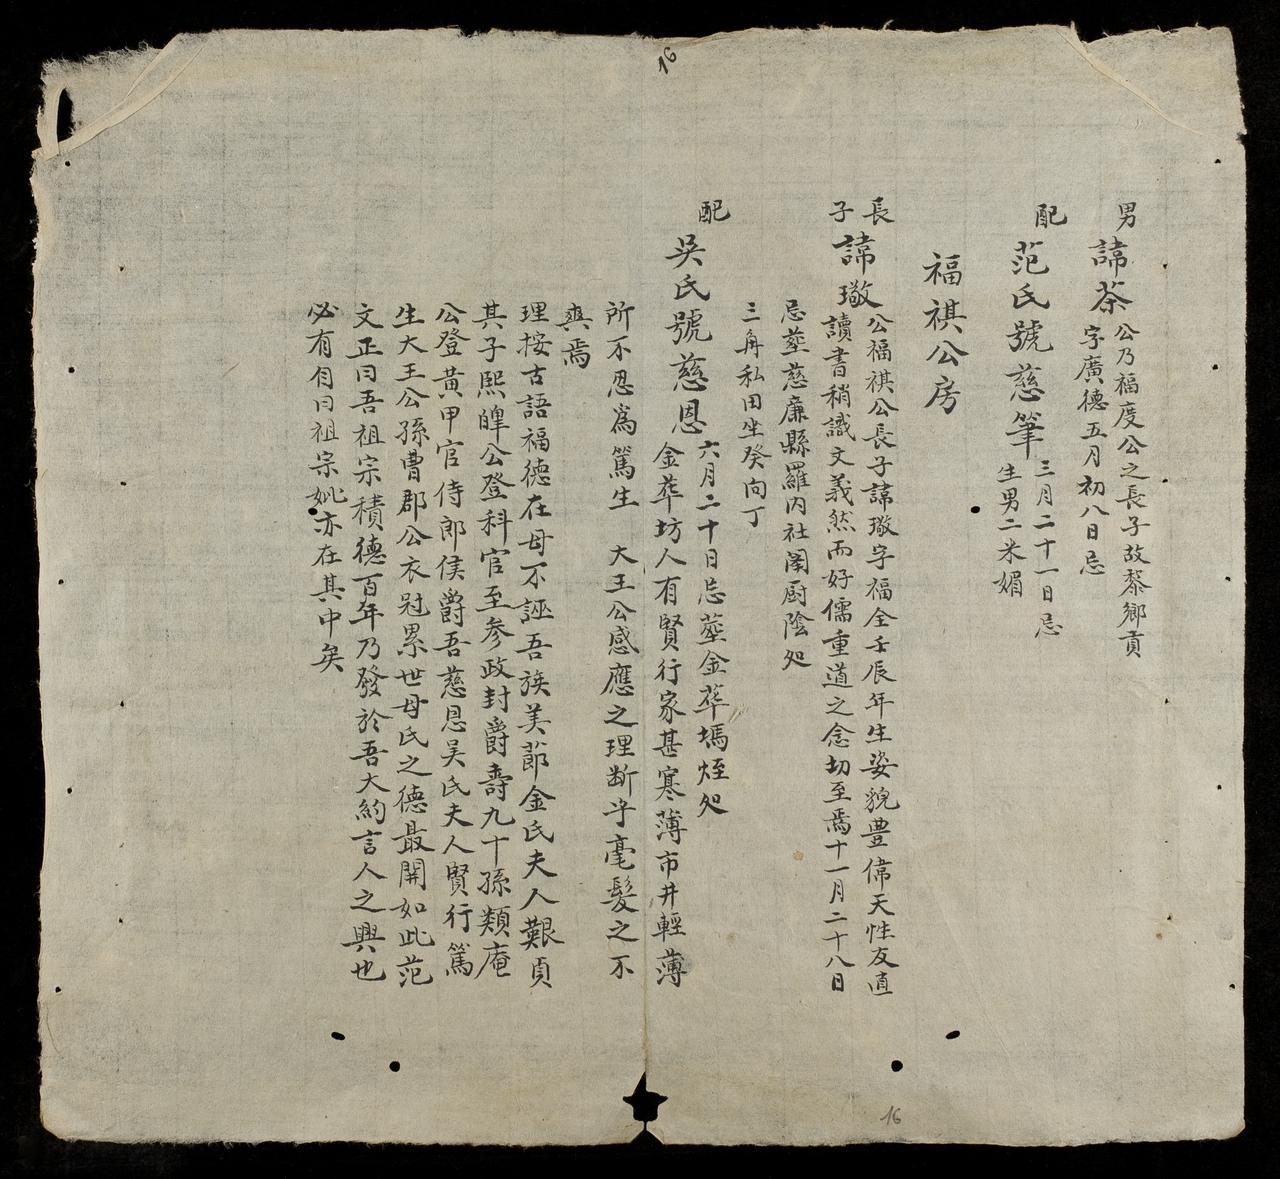 16
男
諱茶
公乃福度公之長子故黎鄉貢
字廣德五月初八日忌
配
范氏號慈筆
三月二十一日忌
生男二米媚
福祺公房
長子
諱璥
公福祺公長子諱璥字福全壬辰年生姿貌豊偉天性友直
讀書稍識文義然而好儒重道之念切至焉十一月二十八日
忌塟慈廉縣羅内社阁厨陰処
三甬私田坐癸向丁
配
吳氏號慈恩
六月二十日忌塟金葬塢垤処
金葬坊人有賢行家甚寒薄市井輕薄
所不忍為篤生 大王公感應之理断乎毫髮之不
爽焉
理按古語福德在母不誣吾族美莭金氏夫人艱貞
其子熙皡公登科官至参政封爵壽九十孫類庵
公登黃甲官侍郎侯爵吾慈恩吴氏夫人賢行篤
生大王公孫曹郡公衣冠累世母氏之德最開如此范
文正曰吾祖宗積德百年乃發於吾大約言人之興也
必有自曰祖宗妣亦在其中矣
16